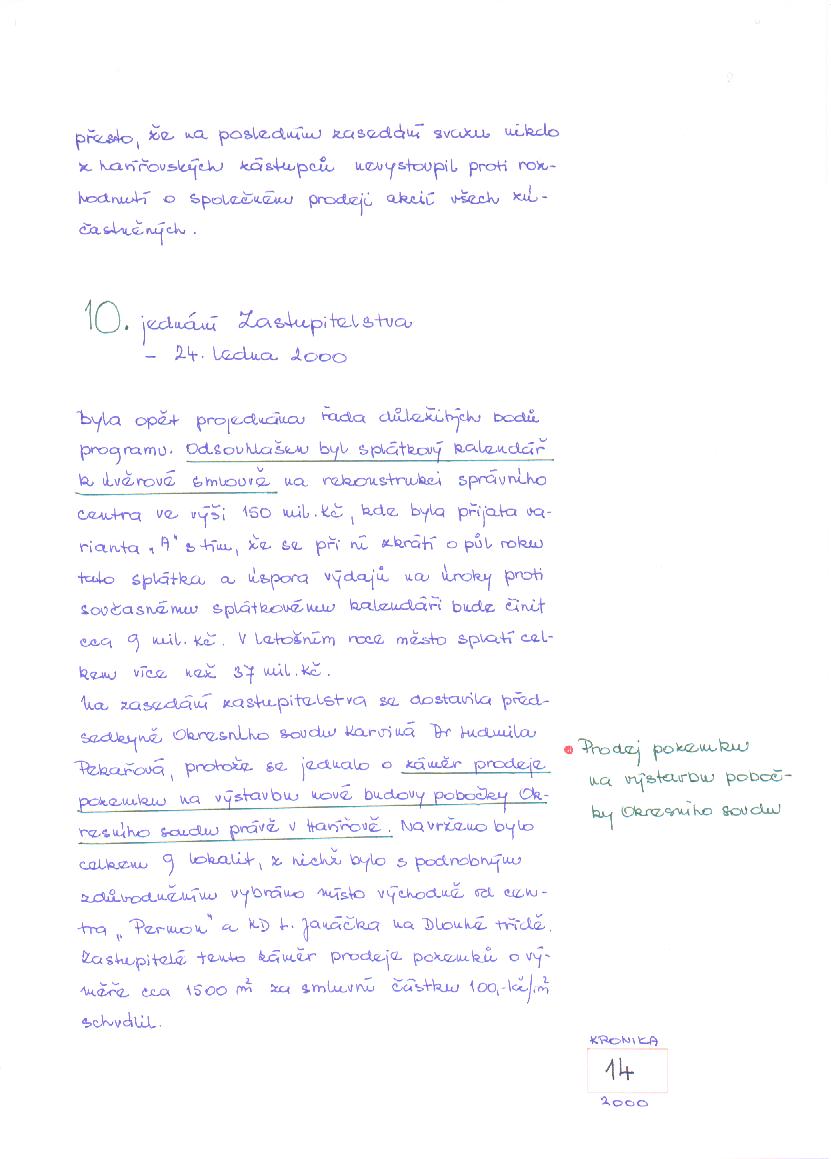 přesto, že na posledním zasedání svazu nikdo
z havířovských zástupců nevystoupil proti roz-
hodnutí o společném prodeji akcií všech zú-
častněných.
10. jednání Zastupitelstva
- 24. ledna 2000
byla opět projednána řada důležitých bodů
programu. Odsouhlašen byl splátkový kalendář
k úvěrové smlouvě na rekonstrukci správního
centra ve výši 150 mil.Kč, kde byla přijata va-
rianta "A" s tím, že se při ní zkrátí o půl roku
tato splátka a úspora výdajů na úroky proti
současnému splátkovému kalendáři bude činit
cca 9 mil.Kč. V letošním roce město splatí cel-
kem více než 37 mil.Kč.
Na zasedání zastupitelstva se dostavila před-
sedkyně Okresního soudu Karviná Dr Ludmila
Pekařová, protože se jednalo o záměr prodeje
pozemku na výstavbu nové budovy pobočky Ok-
resního soudu právě v Havířově. Navrženo bylo
celkem 9 lokalit, z nichž bylo s podrobným
zdůvodněním vybráno místo východně od cen-
tra „Permon" a KD L. Janáčka na Dlouhé třídě.
Zastupitelé tento záměr prodeje pozemků o vý-
měře cca 1500 m² za smluvní částku 100,-Kč/m²
schválil.
Prodej pozemku
na výstavbu poboč-
ky Okresního soudu
KRONIKA
14
2000